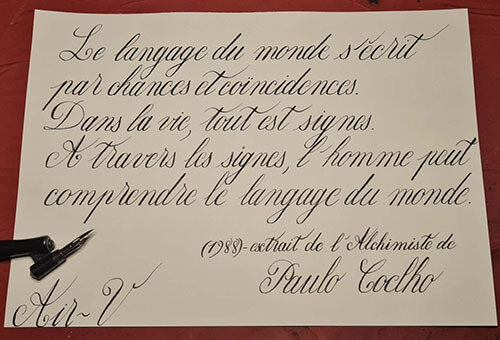 Le langage du monde s'écrit
par chances et coïncidences.
Dans la vie, tout est signes.
A travers les signes, l'homme peut
comprendre le langage du monde.
(1988)- extrait de l'Alchimiste de
Paulo Coelho
Air~V